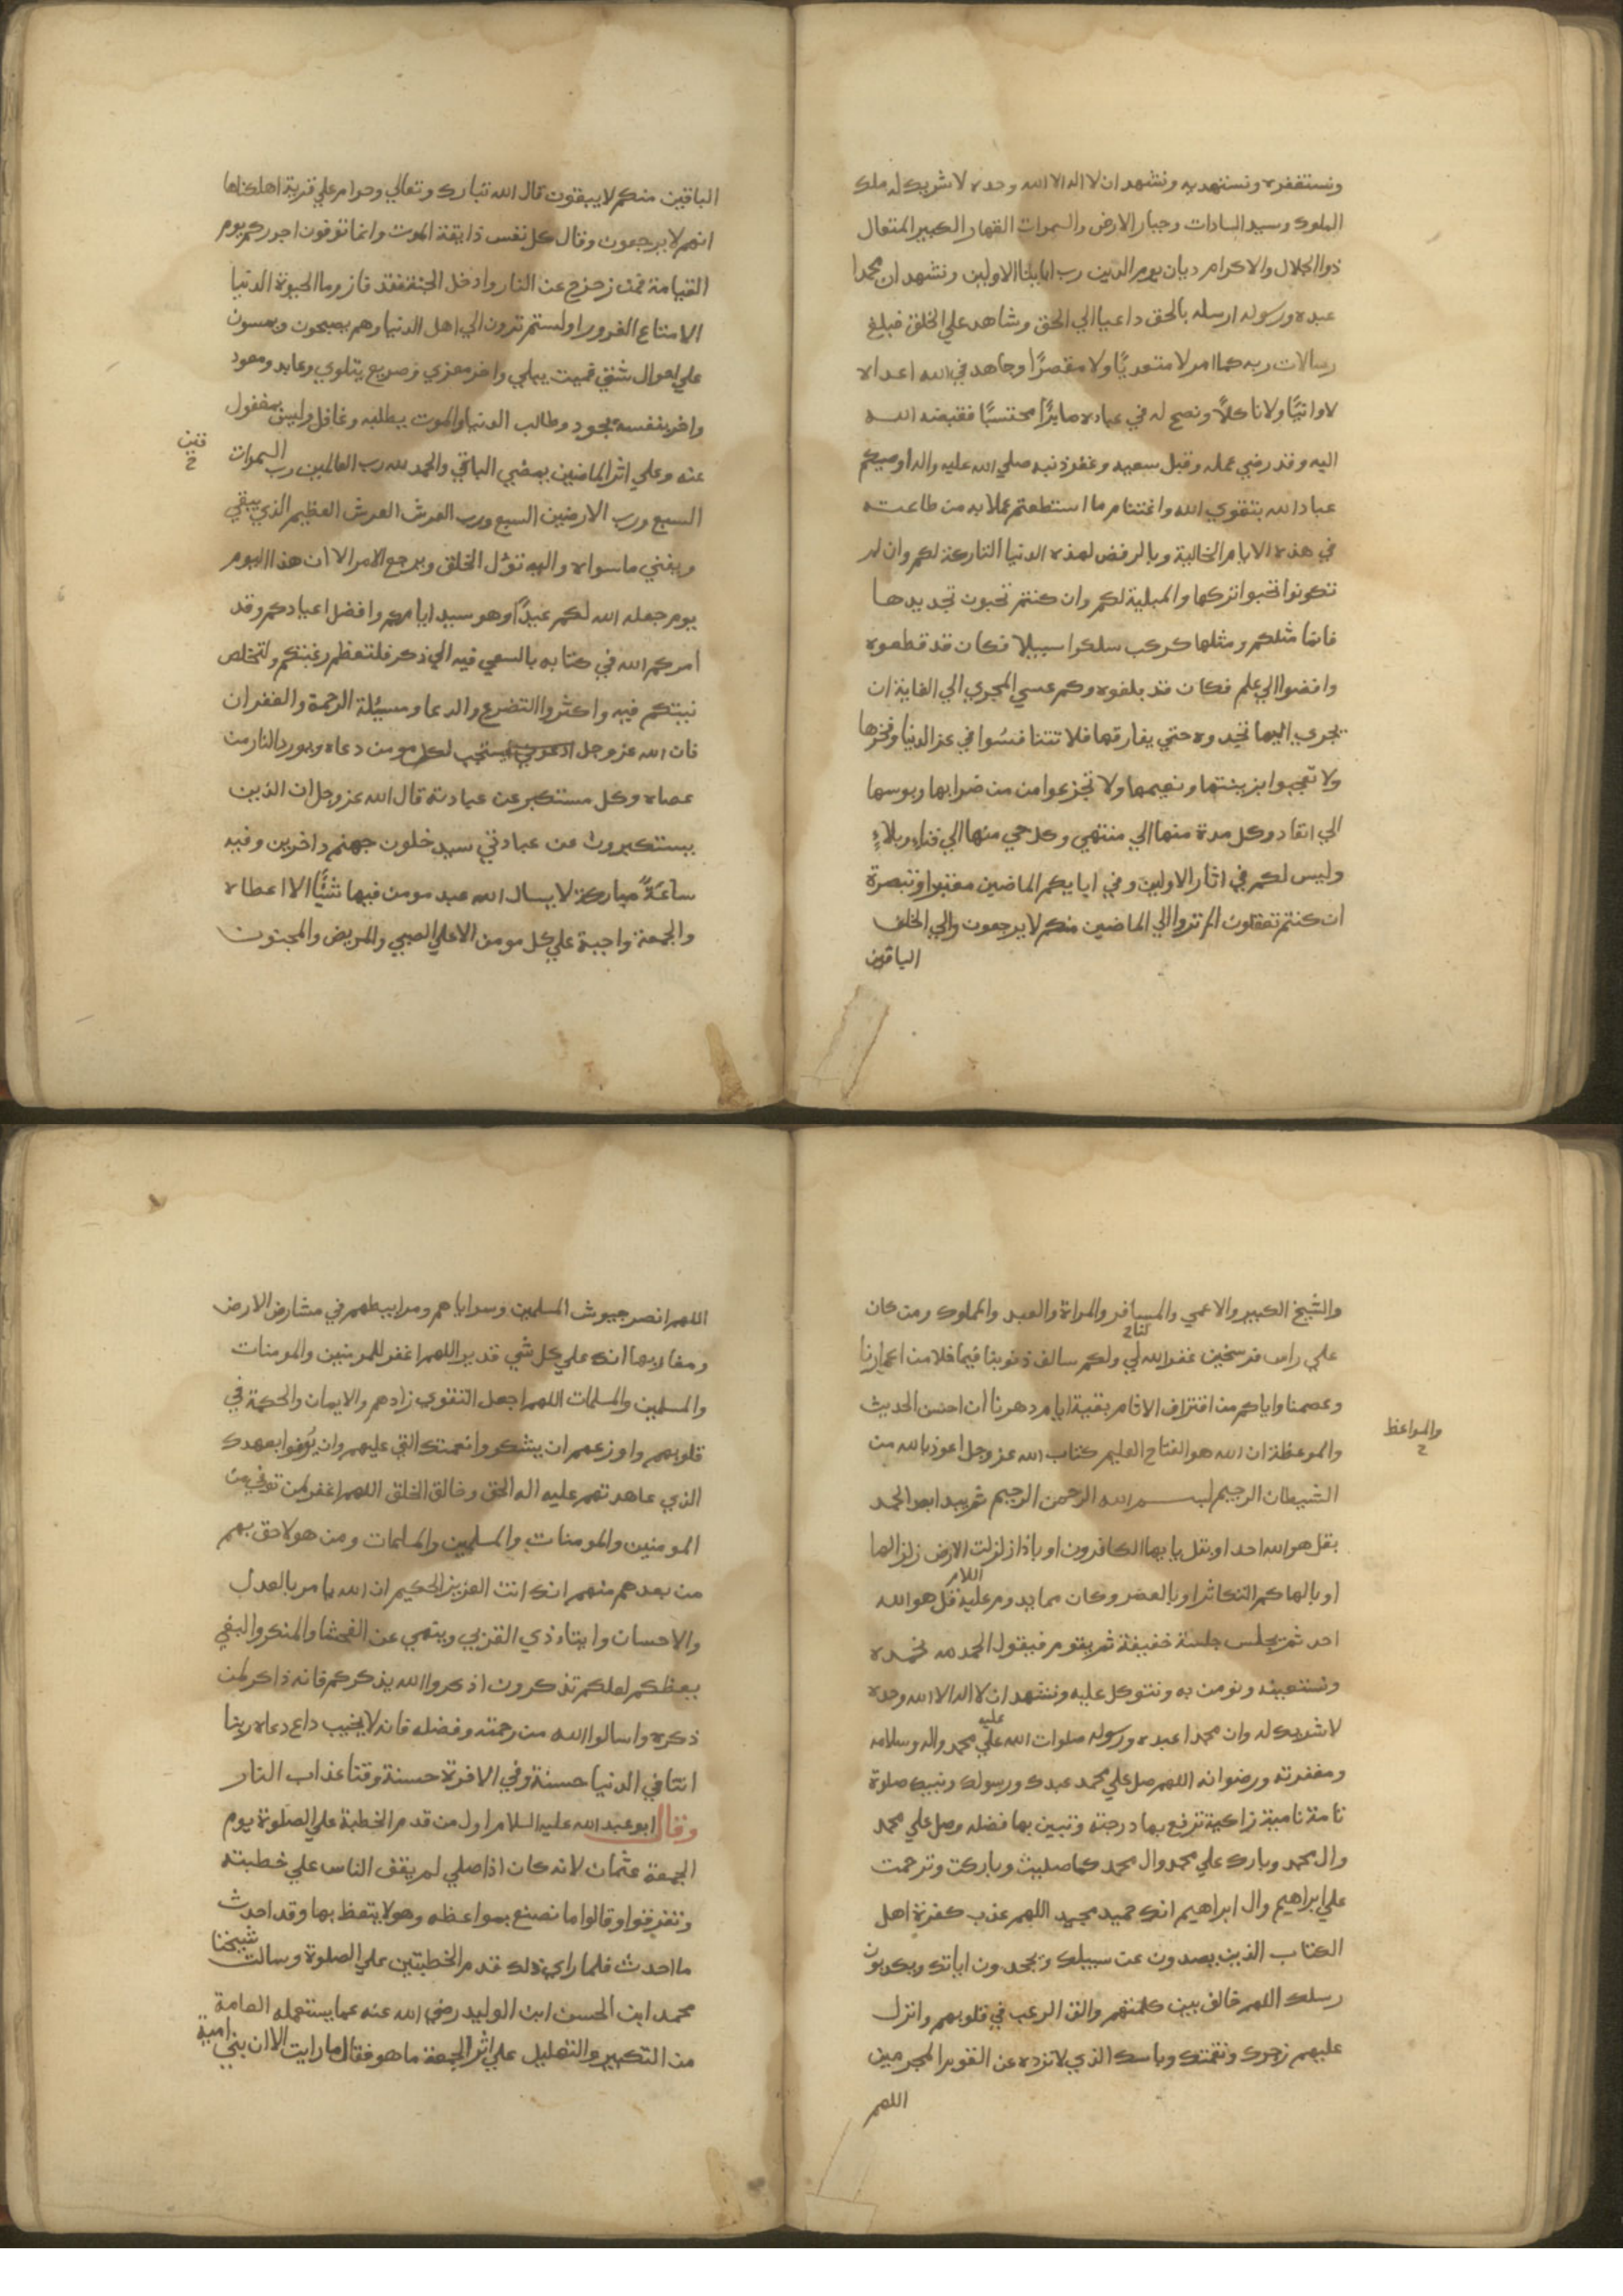 ونستغفره ونستهديه ونشهد ان لا اله الا الله وحده لا شريك له ملك
الملوك وسيد السادات وجبار الارض والسموات القهار الكبير المتعال
ذوا الجلال والاكرام ديان يوم الدين رب ابائنا الاولين ونشهد ان محمدا
عبده ورسوله ارسله بالحق داعيا الي الحق وشاهد علي الخلق فبلغ
رسالات ربه كما امر لا متعديًا ولا مقصرًا وجاهد في الله اعداه
لا وانيًا ولا ناكلًا ونصح له في عباده صابرًا محتسبًا فقبضه الله
اليه وقد رضي عمله وقبل سعيه وغفر ذنبه صلي الله عليه واله اوصيكم
عباد الله بتقوي الله واغتنام ما استطعتم عملا به من طاعته
في هذه الايام الخالية وبالرفض لهذه الدنيا التاركة لكم وان لم
تكونوا تحبوا تركها والمبلية لكم وان كنتم تحبون تجديدها
فانما مثلكم ومثلها كركب سلكوا سبيلا فكان قد قطعوه
وافضوا الي علم فكان قد بلغوه وكم عسي المجري الي الغاية ان
يجري اليها تحدوه حتي يفارقها فلا تتنافسُوا في عز الدنيا وفخرها
ولا تعجبوا بزينتها ونعيمها ولا تجزعوا من من ضرابها وبوسها
الي انفاد وكل مدة منها الي منتهي وكل حي منها الي فناءٍ وبلاءٍ
وليس لكم في اثار الاولين وفي ابايكم الماضين معتبرا وتبصرة
ان كنتم تعقلون الم تروا الي الماضين منكم لا يرجعون والي الخلف
الباقين
الباقين منكم لا يبقون قال الله تبارك وتعالي وحرام علي قرية اهلكناها
انهم لا يرجعون وقال كل نفس ذايقة الموت وانما توفون اجوركم يوم
القيامة فمن زحزح عن النار وادخل الجنة فقد فاز وما الحيوة الدنيا
الا متاع الغرور اولستم ترون الي اهل الدنيا وهم يصبحون ويمسون
علي احوال شتي فميت يبكي واخر معزي وصريع يتلوي وعايد ومعود
واخر بنفسه يجود وطالب الدنيا والموت يطلبه وغافل وليس بمغفول
عنه وعلي اثر الماضين يمضي الباقي والحمد لله رب العالمين رب السموات
السبع ورب الارضين السبع ورب العرش العرش العظيم الذي يبقي
ويفني ما سواه واليه تؤل الخلق ويرجع الامر الا ان هذا اليوم
يوم جعله الله لكم عيدًا وهو سيد ايامكم وافضل اعيادكم وقد
امركم الله في كتابه بالسعي فيه الي ذكر فلتعظم رغبتكم ولتخلص
نيتكم فيه واكثروا التضرع والدعا ومسئلة الرحمة والغفران
فان الله عز وجل ادعوني يستجب لكل مومن دعاه ويورد النار من
عصاه وكل مستكبر عن عبادته قال الله عز وجل ان الذين
يستكبرون عن عبادتي سيدخلون جهنم داخرين وفيه
ساعةً مباركة لا يسال الله عبد مومن فيها شيًا الا اعطاه
والجمعة واجبة علي كل مومن الا علي الصبي والمريض والمجنون
والشيخ الكبير والاعمي والمسافر والمراة والعبد والمملوك ومن كان
علي راس فرسخين غفر الله لي ولكم سالف ذنوبنا فيما خلا من اعمارنا
وعصمنا واياكم من اقتراف الاثام بقية ايام دهرنا ان احسن الحديث
والمواعظ
والموعظة ان الله هو الفتاح العليم كتاب الله عز وجل اعوذ بالله من
الشيطان الرجيم بسم الله الرحمن الرحيم ثم يبدا بعد الحمد
بقل هو الله احد او بقل يا يها الكافرون او باذا زلزلت الارض زلزالها
او بالهاكم التكاثر او بالعصر وكان مما يدوم عليه قل هو الله
احد ثم يجلس جلسة خفيفة ثم يقوم فيقول الحمد لله نحمده
ونستعينه ونومن به ونتوكل عليه ونشهد ان لا اله الا الله وحده
لا شريك له وان محمدا عبده ورسوله صلوات الله علي محمد واله وسلامه
عليه
ومغفرته ورضوانه اللهم صل علي محمد عبدك ورسولك ونبيك صلوة
تامة نامية زاكية ترفع بها درجته وتبين بها فضله وصل علي محمد
وال محمد وبارك علي محمد وال محمد كما صليت وباركت وترحمت
علي ابراهيم وال ابراهيم انك حميد مجيد اللهم عذب كفرة اهل
الكتاب الذين يصدون عن سبيلك ويجحدون اياتك ويكذبون
رسلك اللهم خالف بين كلمتهم والق الرعب في قلوبهم وانزل
عليهم زجرك ونقمتك وباسك الذي لا ترده عن القوم المجرمين
اللهم
اللهم انصر جيوش المسلمين وسراياهم ومرابيطهم في مشارق الارض
ومغاربها انك علي كل شي قدير اللهم اغفر للمومنين والمومنات
والمسلمين والمسلمات اللهم اجعل التقوي زادهم والايمان والحكمة في
قلوبهم واوزعهم ان يشكروا نعمتك التي عليهم وان يوفوا بعهدك
الذي عاهدتهم عليه اله الحق وخالق الخلق اللهم اغفر لمن توفي من
المومنين والمومنات والمسلمين والمسلمات ومن هو لاحق بهم
من بعدهم منهم انك انت العزيز الحكيم ان الله يامر بالعدل
والاحسان وايتاء ذي القربي وينهي عن الفحشا والمنكر والبغي
يعظكم لعلكم تذكرون اذكروا الله يذكركم فانه ذاكر لمن
ذكره واسالوا الله من رحمته وفضله فانه لا يخيب داع دعاه ربنا
اتنا في الدنيا حسنة وفي الاخرة حسنة وقنا عذاب النار
وقال ابو عبد الله عليه السلام اول من قدم الخطبة علي الصلوة يوم
الجمعة عثمان لانه كان اذا صلي لم يقف الناس علي خطبته
وتفرقوا وقالوا ما نصنع بمواعظه وهو لا يتعظ بها وقد احدث
ما احدث فلما راي ذلك قدم الخطبتين علي الصلوة وسالت شيخنا
محمد ابن الحسن ابن الوليد رضي الله عنه عما يستعمله العامة
من التكبير والتهليل علي اثر الجمعة ما هو فقال ما رايت الا ان بني امية